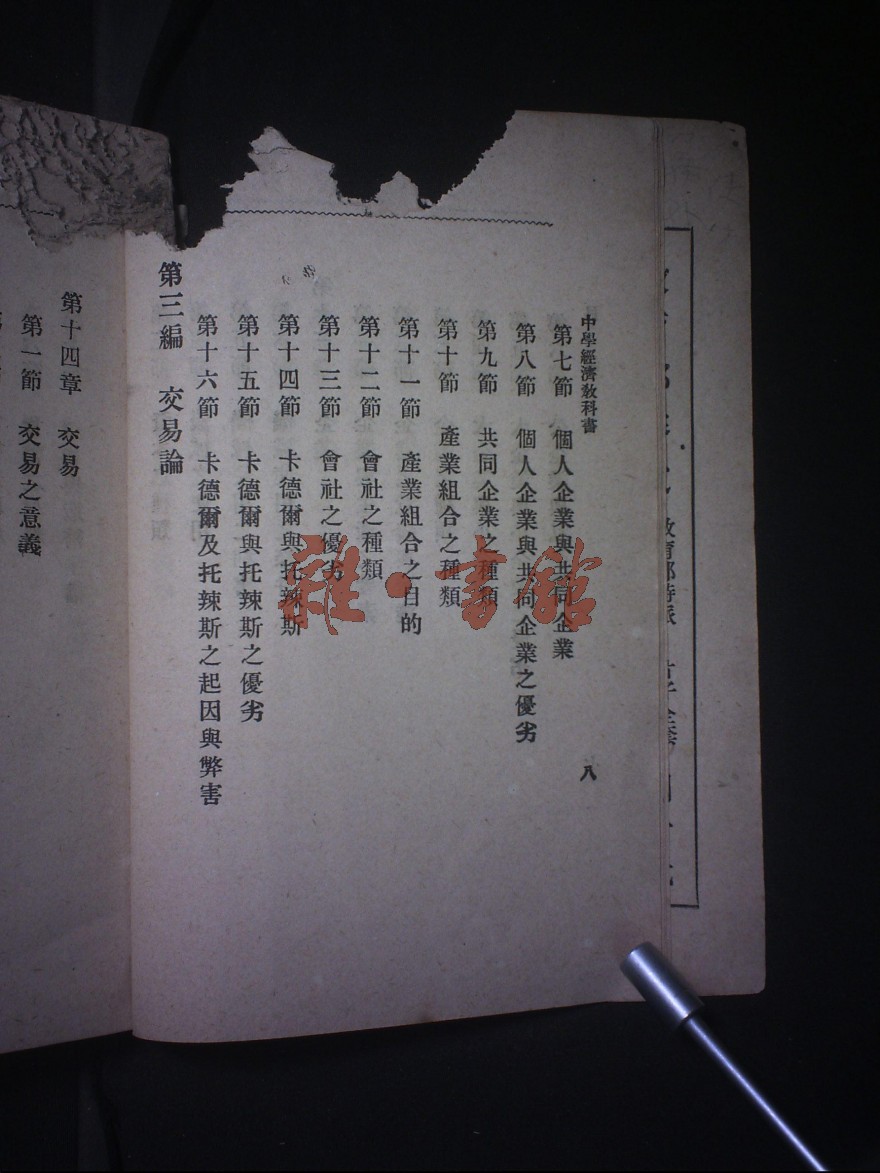 中學經濟教科書
八
第七節 個人企業與共同企業
第八節 個人企業與共同企業之優劣
第九節 共同企業之種類
第十節 產業組合之種類
第十一節 產業組合之目的
第十二節 會社之種類
第十三節 會社之優劣
第十四節 卡德爾與托辣斯
第十五節 卡德爾與托辣斯之優劣
第十六節 卡德爾及托辣斯之起因與弊害
第三編 交易論
第十四章 交易
第一節 交易之意義
雜·書館